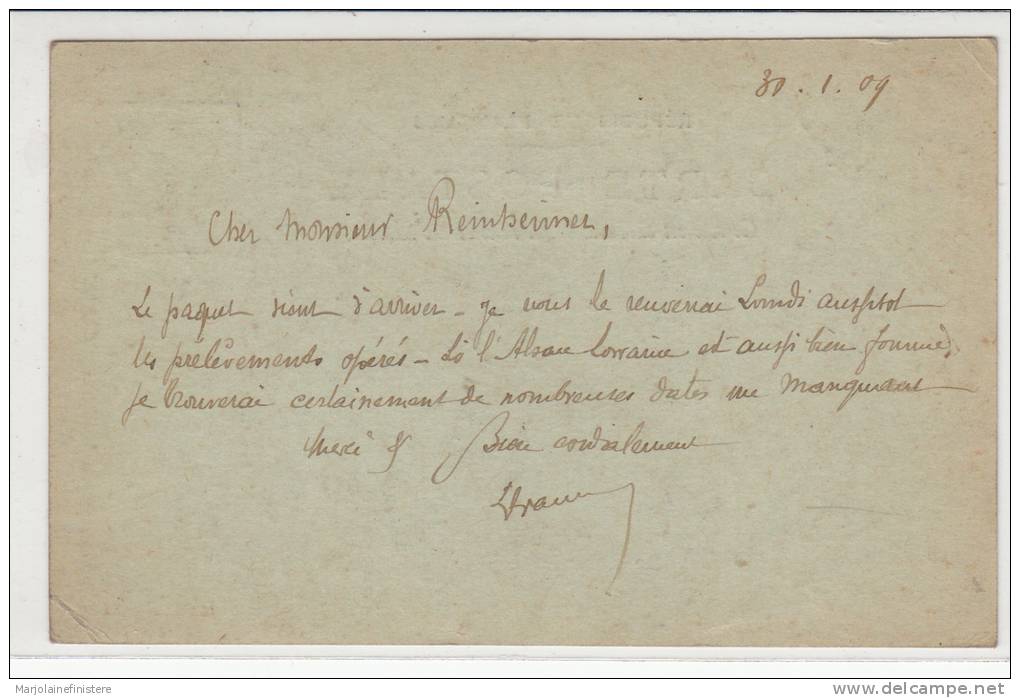 30.1.09
Cher Monsieur Reinheimer,
Le paquet vient d'arriver - je vous le renverrai Lundi aussitot
les prélèvements opérés - Si l'Alsace Lorraine est aussi bien fournie,
je trouverai certainement de nombreuses dates me manquant
Merci & Bien cordialement
Marjolainefinistere
delcampe.net